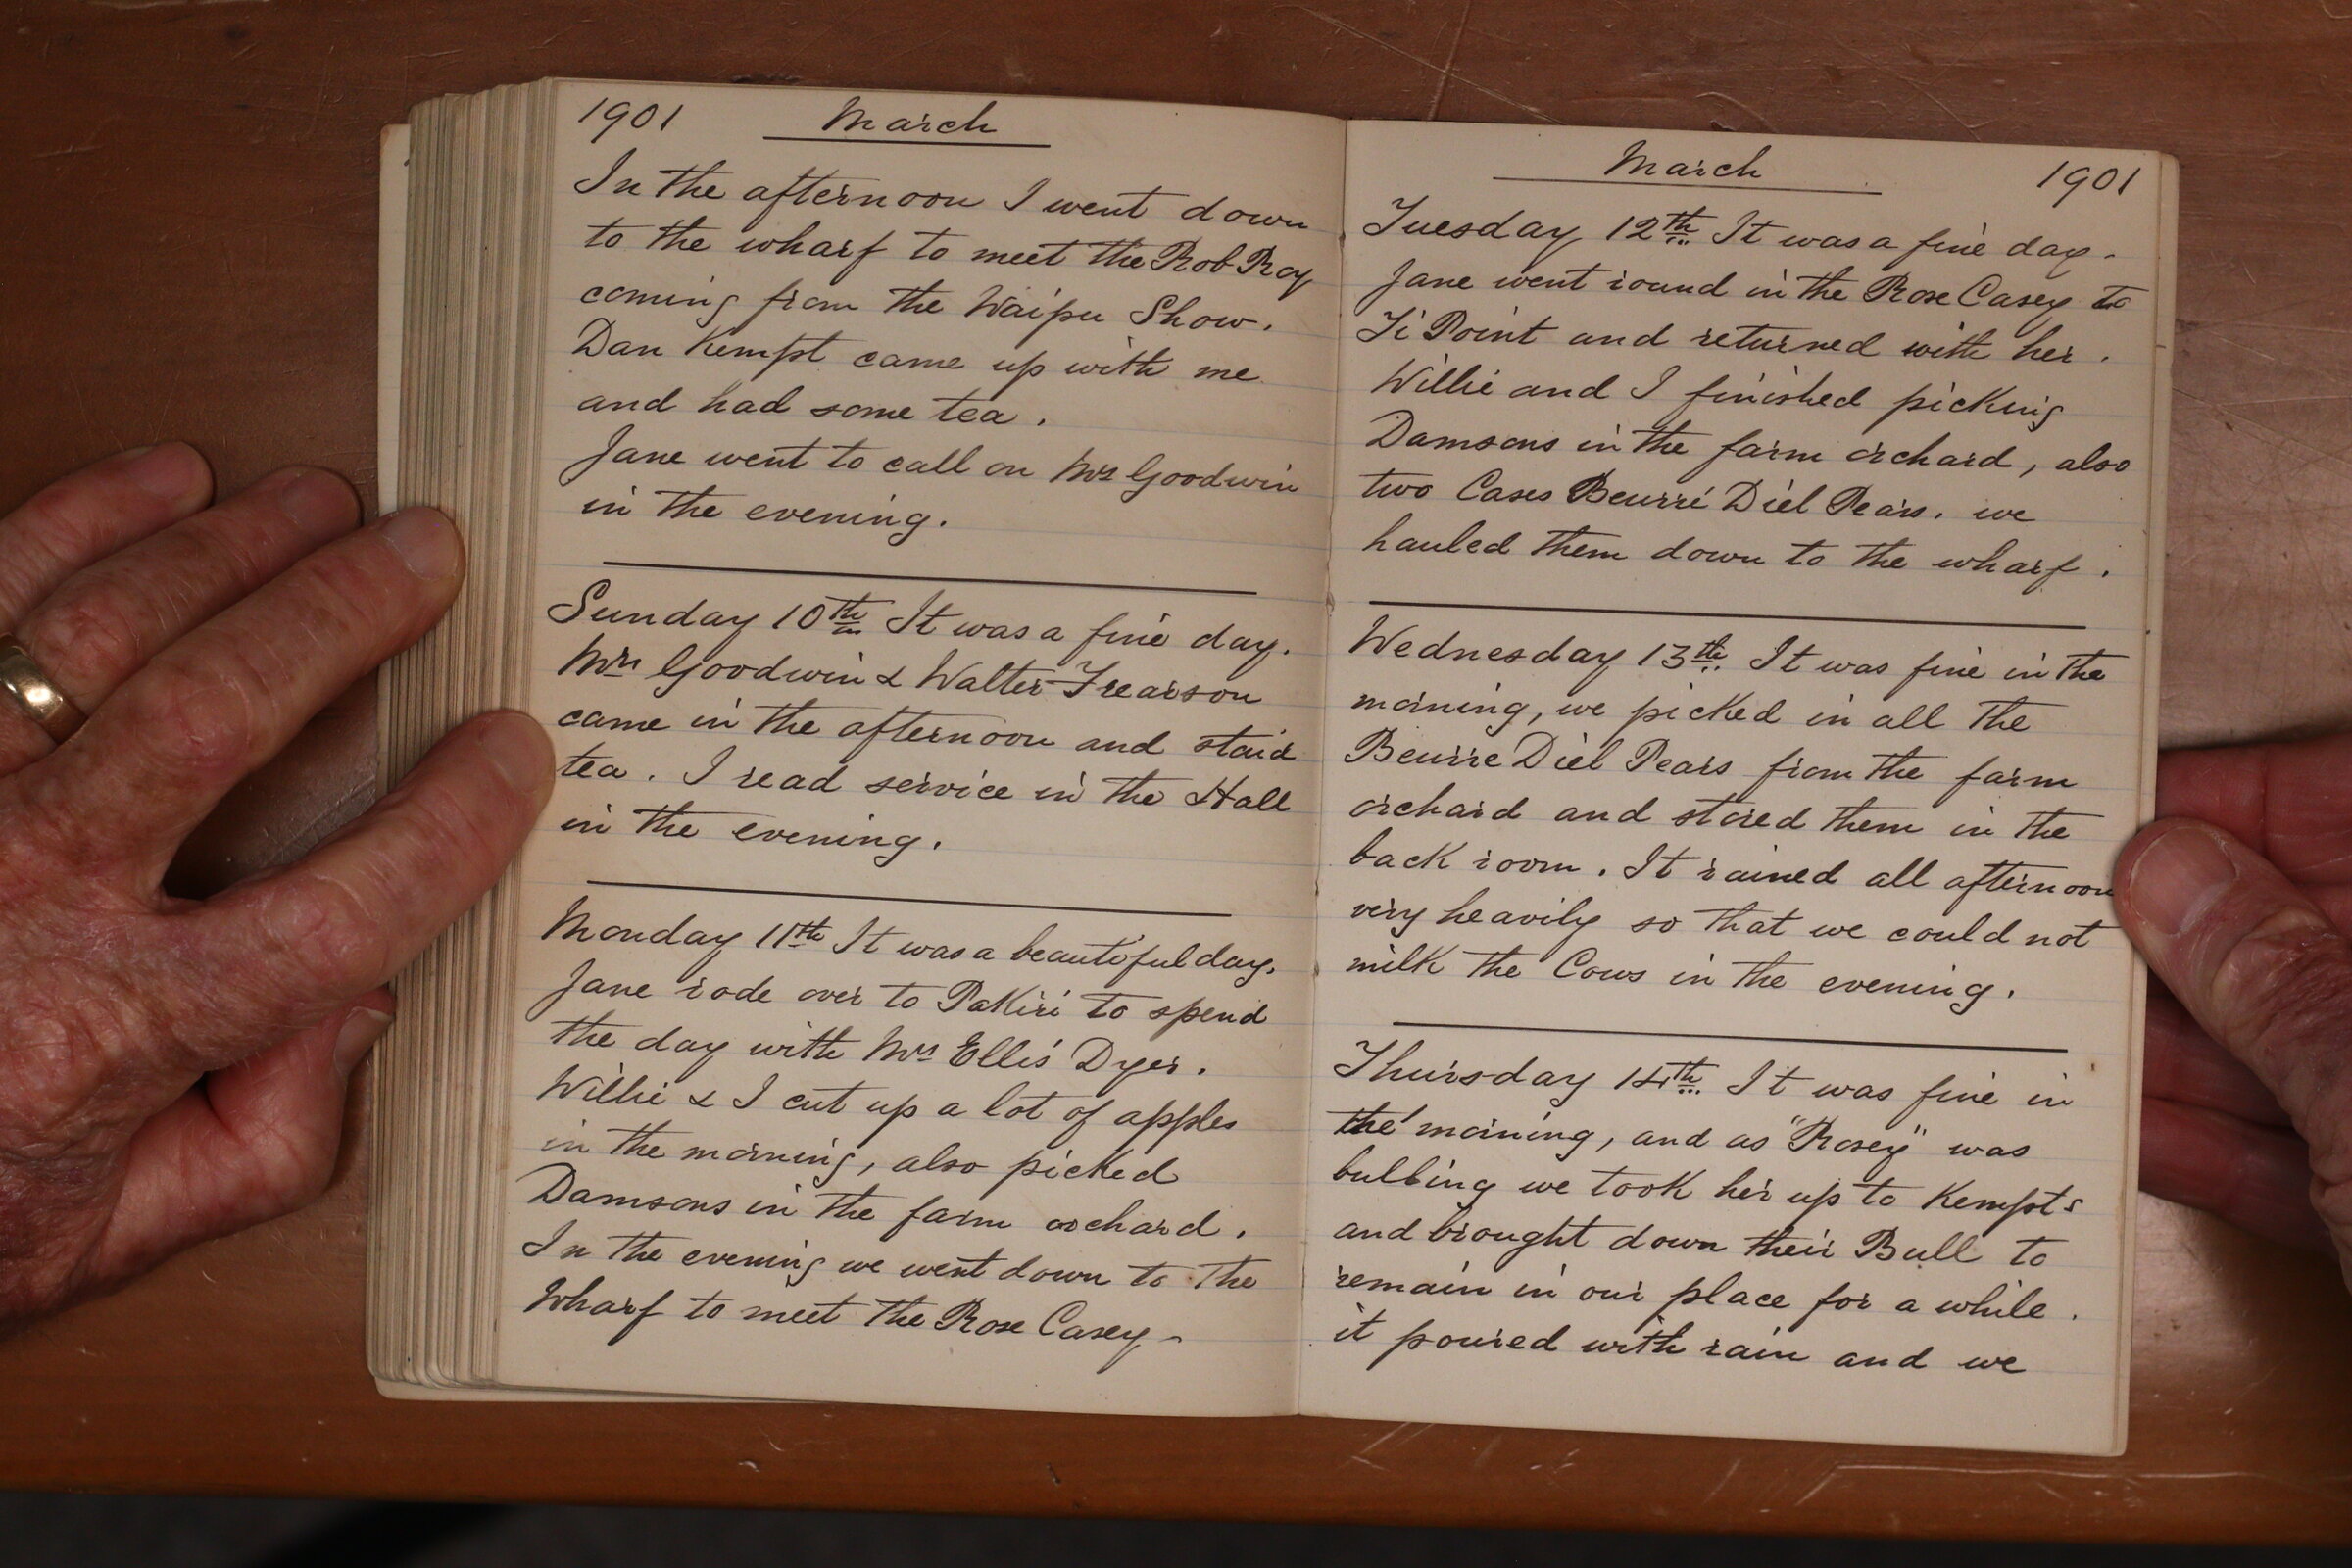 1901 March
In the afternoon I went down
to the wharf to meet the Rob Roy
coming from the Waipu Show.
Dan Kempt came up with me
and had some tea.
Jane went to call on Mrs Goodwin
in the evening.
Sunday 10th It was a fine day.
Mrs Goodwin & Walter Frearson
came in the afternoon and staid
tea. I read service in the Hall
in the evening.
Monday 11th It was a beautiful day.
Jane rode over to Pakiri to spend
the day with Mrs Ellis Dyer.
Willie & I cut up a lot of apples
in the morning, also picked
Damsons in the farm orchard.
In the evening we went down to the
Wharf to meet the Rose Casey -
March 1901
Tuesday 12th It was a fine day.
Jane went round in the Rose Casey to
Ti Point and returned with her.
Willie and I finished picking
Damsons in the farm orchard, also
two Cases Beurré Diel Pears. we
hauled them down to the wharf.
Wednesday 13th It was fine in the
morning, we picked in all the
Beurre Diel Pears from the farm
orchard and stored them in the
back room. It rained all afternoon
very heavily so that we could not
milk the Cows in the evening.
Thursday 14th It was fine in
the morning, and as "Rosey" was
bulling we took her up to Kempts
and brought down their Bull to
remain in our place for a while.
it poured with rain and we